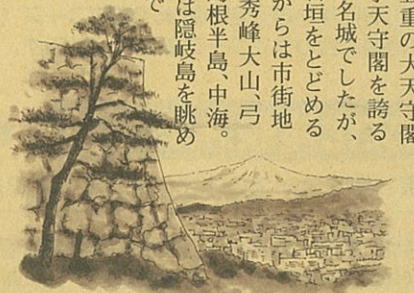 重の大天守閣
天守閣を誇る
名城でしたが、
石垣をとどめる
からは市街地
秀峰大山、弓
島根半島、中海。
は隠岐島を眺め
で